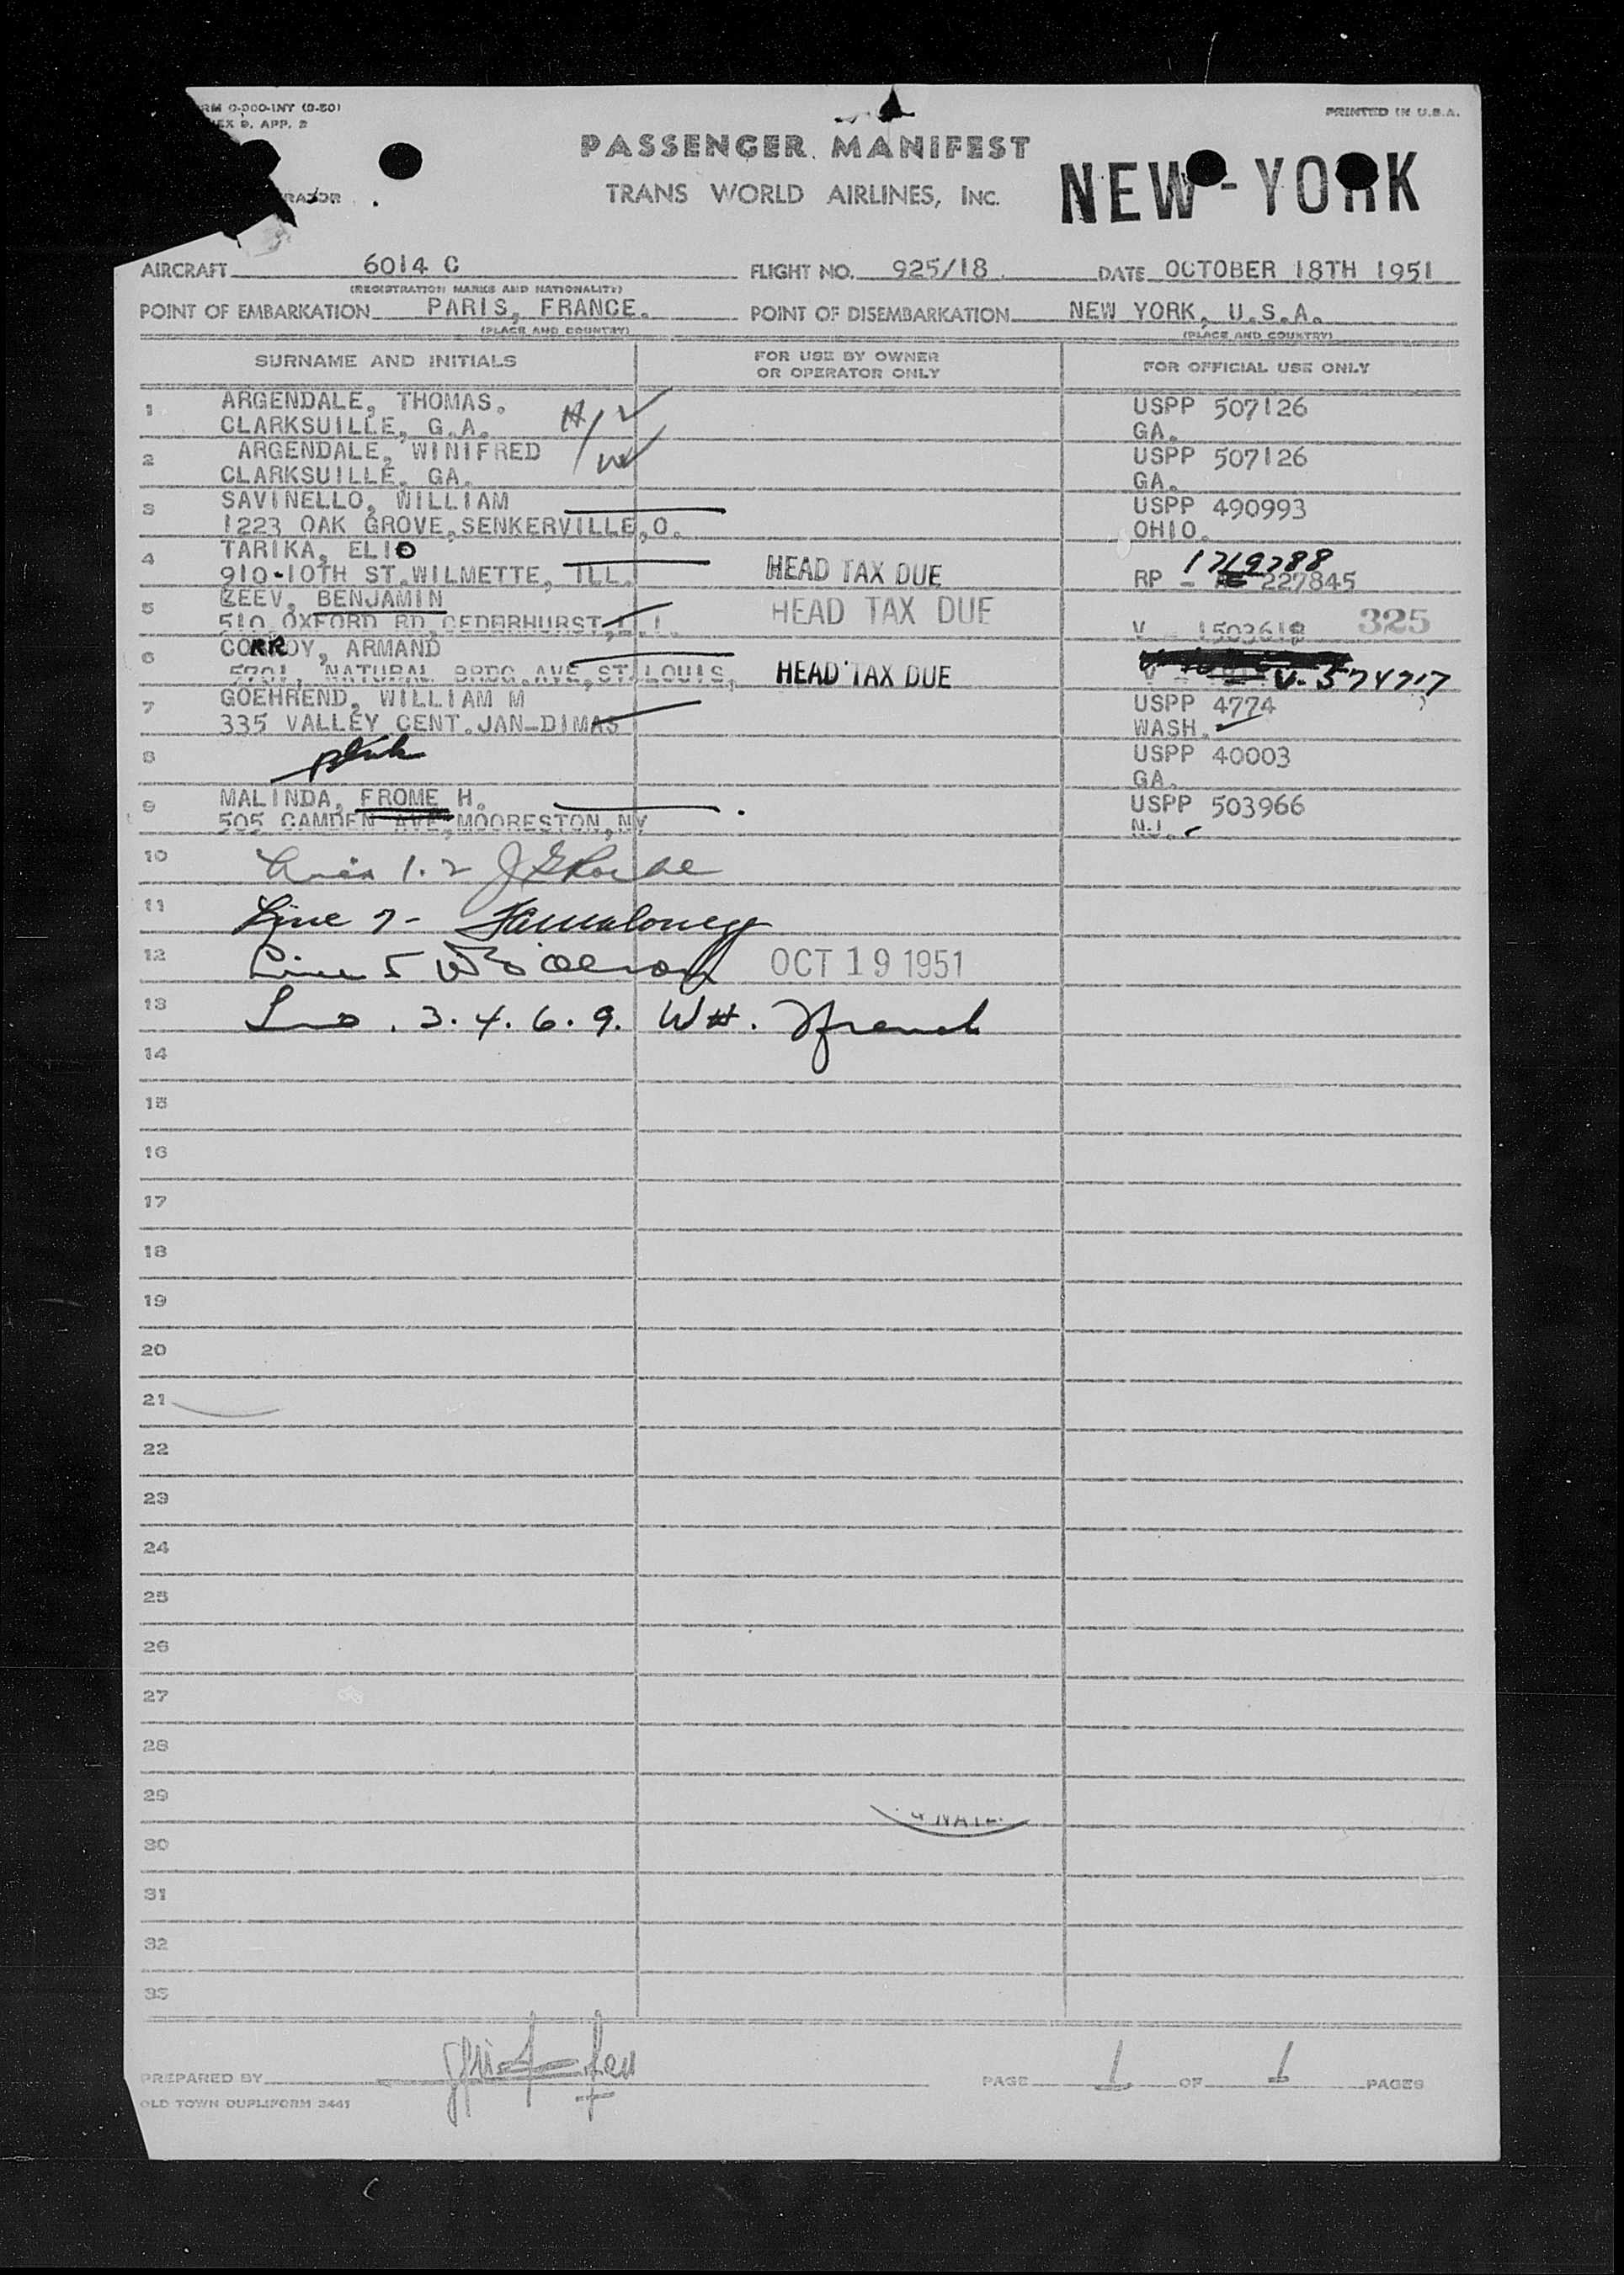 RM 0-200-INT (8-50)
EX 9, APP. 2
PRINTED IN U.S.A.
PASSENGER MANIFEST
TRANS WORLD AIRLINES, INC.
NEW-YORK
AIRCRAFT 6014 C FLIGHT NO. 925/18 DATE OCTOBER 18TH 1951
(REGISTRATION MARKS AND NATIONALITY)
POINT OF EMBARKATION PARIS, FRANCE. POINT OF DISEMBARKATION NEW YORK, U.S.A.
(PLACE AND COUNTRY) (PLACE AND COUNTRY)
SURNAME AND INITIALS FOR USE BY OWNER OR OPERATOR ONLY FOR OFFICIAL USE ONLY
1 ARGENDALE, THOMAS. USPP 507126
CLARKSUILLE, G.A. GA.
2 ARGENDALE, WINIFRED USPP 507126
CLARKSUILLE, GA. GA.
3 SAVINELLO, WILLIAM USPP 490993
1223 OAK GROVE,SENKERVILLE,O. OHIO.
4 TARIKA, ELIO 1719788
910-10TH ST.WILMETTE, ILL. HEAD TAX DUE RP - 227845
5 ZEEV, BENJAMIN HEAD TAX DUE 325
510 OXFORD RD,CEDERHURST,L.I. V - 1503618
6 CORROY, ARMAND
5701, NATURAL BRDG.AVE,ST.LOUIS, HEAD TAX DUE V - V-574717
7 GOEHREND, WILLIAM M USPP 4774
335 VALLEY CENT.JAN-DIMAS WASH.
8 USPP 40003
GA.
9 MALINDA, FROME H. USPP 503966
505 CAMDEN AVE,MOORESTON,NY N.J.
10 Lines 1.2
11 Line 7-
12 Line 5 OCT 19 1951
13 3.4.6.9.
14
15
16
17
18
19
20
21
22
23
24
25
26
27
28
29
30
31
32
33
PREPARED BY PAGE 1 OF 1 PAGES
OLD TOWN DUPLIFORM 3441